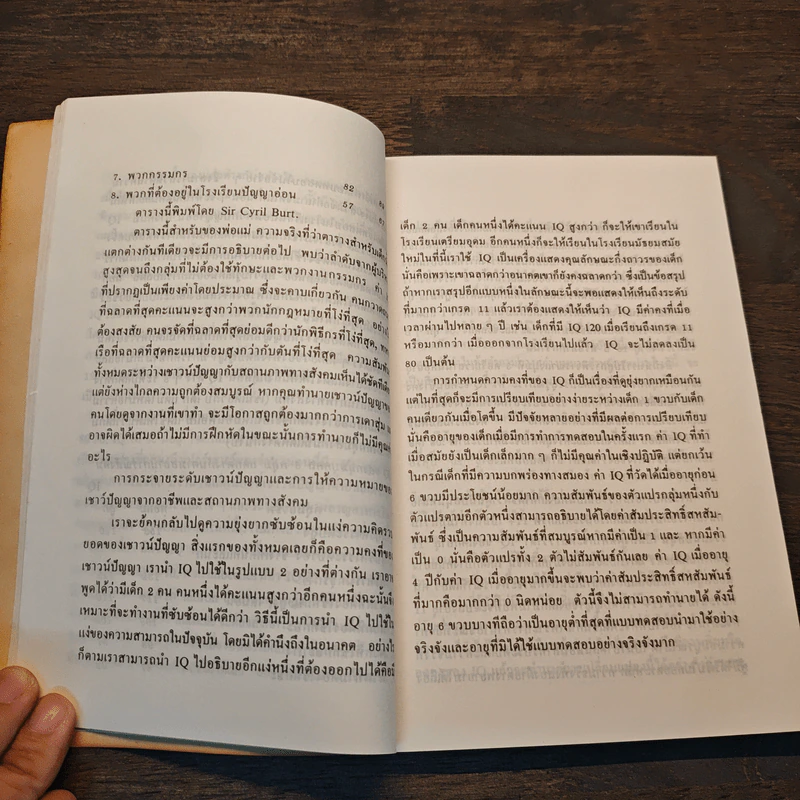 7. พวกกรรมกร 82
8. พวกที่ต้องอยู่ในโรงเรียนปัญญาอ่อน 57
ตารางนี้พิมพ์โดย Sir Cyril Burt.
ตารางนี้สำหรับของพ่อแม่ ความจริงที่ว่าตารางสำหรับเด็ก
แตกต่างกันทีเดียวจะมีการอธิบายต่อไป พบว่าลำดับจากผู้บริ
สูงสุดจนถึงกลุ่มที่ไม่ต้องใช้ทักษะและพวกงานกรรมกร ค่า
ที่ปรากฏเป็นเพียงค่าโดยประมาณ ซึ่งจะคาบเกี่ยวกัน คนกวาด
ที่ฉลาดที่สุดคะแนนจะสูงกว่าพวกนักกฎหมายที่โง่ที่สุด อย่าง
ต้องสงสัย คนจรจัดที่ฉลาดที่สุดย่อมดีกว่านักพิธีกรที่โง่ที่สุด,
เรือที่ฉลาดที่สุดคะแนนย่อมสูงกว่ากัปตันที่โง่ที่สุด ความสัมพัน
ทั้งหมดระหว่างเชาวน์ปัญญากับสถานภาพทางสังคมเห็นได้ชัดทีเดีย
แต่ยังห่างไกลความถูกต้องสมบูรณ์ หากคุณทำนายเชาวน์ปัญญาข
คนโดยดูจากงานที่เขาทำ จะมีโอกาสถูกต้องมากกว่าการเดาสุ่ม
อาจผิดได้เสมอถ้าไม่มีการฝึกหัดในขณะนั้นการทำนายก็ไม่มีคุณค
อะไร
การกระจายระดับเชาวน์ปัญญาและการให้ความหมายของ
เชาว์ปัญญาจากอาชีพและสถานภาพทางสังคม
เราจะย้อนกลับไปดูความยุ่งยากซับซ้อนในแง่ความคิดรวบ
ยอดของเชาวน์ปัญญา สิ่งแรกของทั้งหมดเลยก็คือความคงที่ของ
เชาวน์ปัญญา เรานำ IQ ไปใช้ในรูปแบบ 2 อย่างที่ต่างกัน เราอาจ
พูดได้ว่ามีเด็ก 2 คน คนหนึ่งได้คะแนนสูงกว่าอีกคนหนึ่งฉะนั้นจึง
เหมาะที่จะทำงานที่ซับซ้อนได้ดีกว่า วิธีนี้เป็นการนำ IQ ไปใช้ใน
แง่ของความสามารถในปัจจุบัน โดยมิได้คำนึงถึงในอนาคต อย่างไร
ก็ตามเราสามารถนำ IQ ไปอธิบายอีกแง่หนึ่งที่ต้องออกไปได้คือมี
เด็ก 2 คน เด็กคนหนึ่งได้คะแนน IQ สูงกว่า ก็จะให้เขาเรียนใน
โรงเรียนเตรียมอุดม อีกคนหนึ่งก็จะให้เรียนในโรงเรียนมัธยมสมัย
ใหม่ในที่นี้เราใช้ IQ เป็นเครื่องแสดงคุณลักษณะกึ่งถาวรของเด็ก
นั่นคือเพราะเขาฉลาดกว่าอนาคตเขาก็ยังคงฉลาดกว่า ซึ่งเป็นข้อสรุป
ถ้าหากเราสรุปอีกแบบหนึ่งในลักษณะนี้จะพอแสดงให้เห็นถึงระดับ
ที่มากกว่าเกรด 11 แล้วเราต้องแสดงให้เห็นว่า IQ มีค่าคงที่เมื่อ
เวลาผ่านไปหลาย ๆ ปี เช่น เด็กที่มี IQ 120 เมื่อเรียนถึงเกรด 11
หรือมากกว่า เมื่อออกจากโรงเรียนไปแล้ว IQ จะไม่ลดลงเป็น
80 เป็นต้น
การกำหนดความคงที่ของ IQ ก็เป็นเรื่องที่ดูยุ่งยากเหมือนกัน
แต่ในที่สุดก็จะมีการเปรียบเทียบอย่างง่ายระหว่างเด็ก 1 ขวบกับเด็ก
คนเดียวกันเมื่อโตขึ้น มีปัจจัยหลายอย่างที่มีผลต่อการเปรียบเทียบ
นั่นคืออายุของเด็กเมื่อมีการทำการทดสอบในครั้งแรก ค่า IQ ที่ทำ
เมื่อสมัยยังเป็นเด็กเล็กมาก ๆ ก็ไม่มีคุณค่าในเชิงปฏิบัติ แต่ยกเว้น
ในกรณีเด็กที่มีความบกพร่องทางสมอง ค่า IQ ที่วัดได้เมื่ออายุก่อน
6 ขวบมีประโยชน์น้อยมาก ความสัมพันธ์ของตัวแปรกลุ่มหนึ่งกับ
ตัวแปรตามอีกตัวหนึ่งสามารถอธิบายได้โดยค่าสัมประสิทธิ์สหสัม-
พันธ์ ซึ่งเป็นความสัมพันธ์ที่สมบูรณ์หากมีค่าเป็น 1 และ หากมีค่า
เป็น 0 นั่นคือตัวแปรทั้ง 2 ตัวไม่สัมพันธ์กันเลย ค่า IQ เมื่ออายุ
4 ปีกับค่า IQ เมื่ออายุมากขึ้นจะพบว่าค่าสัมประสิทธิ์สหสัมพันธ์
ที่มากคือมากกว่า 0 นิดหน่อย ตัวนี้จึงไม่สามารถทำนายได้ ดังนี้
อายุ 6 ขวบบางทีถือว่าเป็นอายุต่ำที่สุดที่แบบทดสอบนำมาใช้อย่าง
จริงจังและอายุที่มิได้ใช้แบบทดสอบอย่างจริงจังมาก